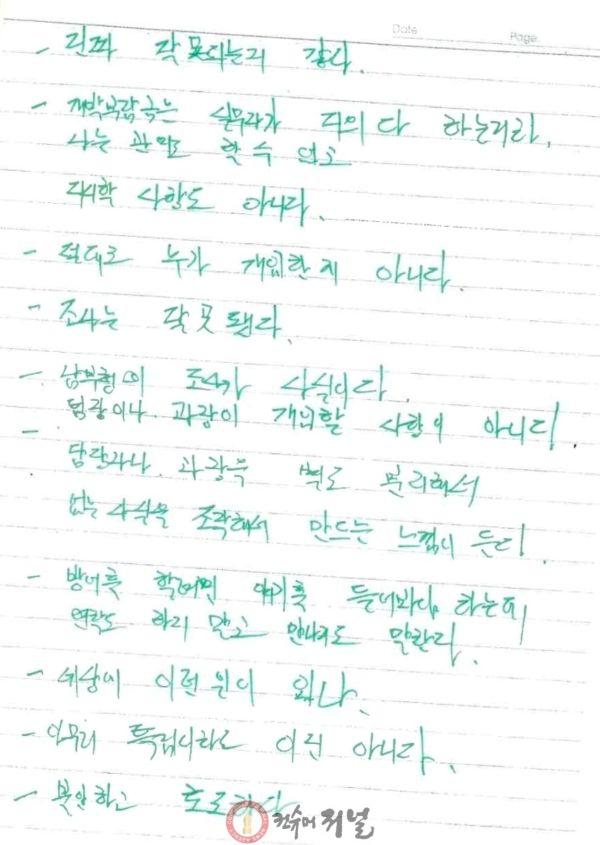 Date
Page
- 진짜 잘못되는지 같다.
- 계약부탁 금은 실무자가 다 하는거라,
나는 관여도 할 수 없고
지시할 사항도 아니다.
- 절대로 누가 개입한지 아니다.
- 조사는 잘못됐다.
- 남부청의 조사가 사실이다.
팀장이나 과장이 개입할 사항이 아니다.
- 담당자나 과장을 별도 분리해서
없는 사실을 조작해서 만드는 느낌이 든다.
- 방어를 할려면 얘기를 들어봐야 하는데
연락도 하지 말고 만나지도 말란다.
- 세상에 이런일이 있나.
- 아무리 특검이라도 이런 아니다.
- 불안하고 초조하다
컨슈머저널